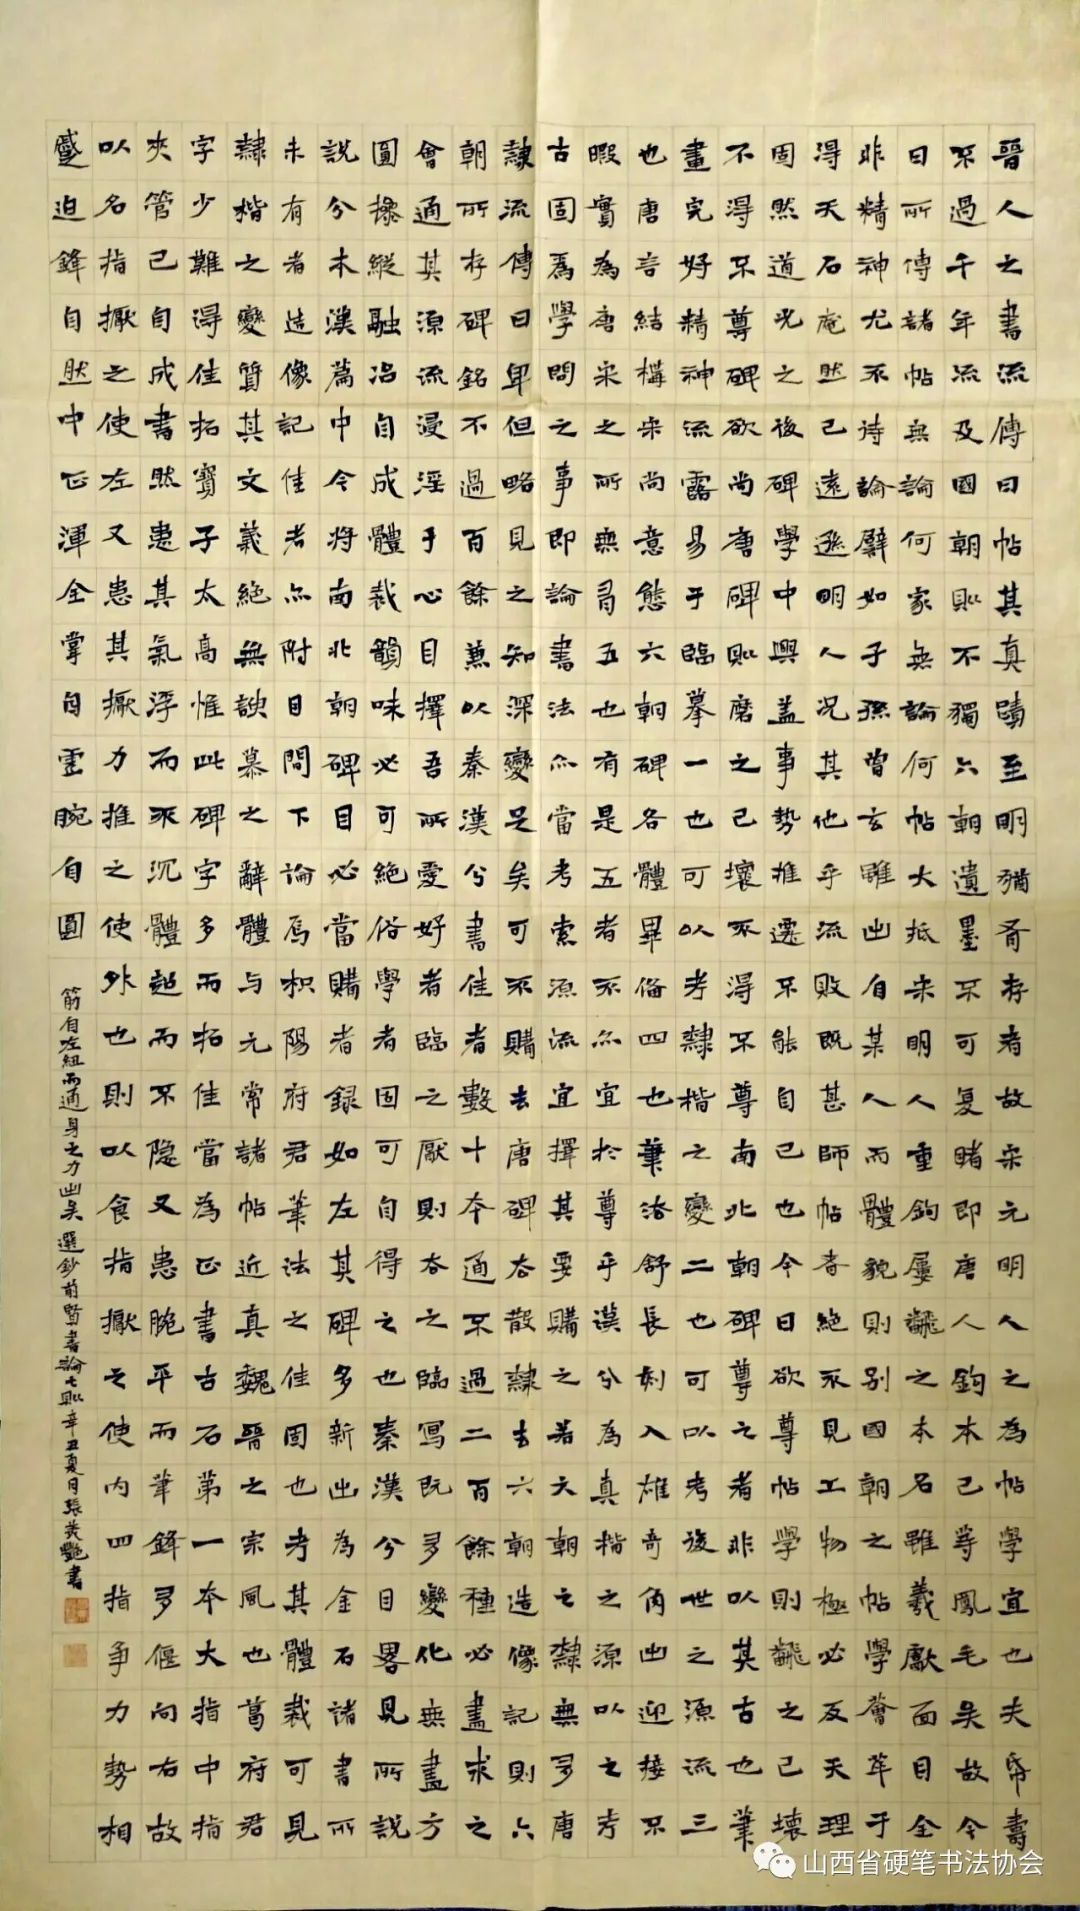 晉人之書流傳曰帖其真蹟至明猶有存者故宋元明人之為帖學宜也夫帋壽
不過千年流及國朝則不獨六朝遺墨不可复睹即唐人鉤本已等鳳毛矣故今
日所傳諸帖無論何家無論何帖大抵宋明人重鉤屢飜之本名雖羲獻面目全
非精神尤不待論譬如子孫曾玄雖出自某人而體貌則別國朝之帖學薈萃于
得天石庵然已遠遜明人況其他乎流敗既甚師帖者絕不見工物極必反天理
固然道光之後碑學中興蓋事勢推遷不能自已也今日欲尊帖學則飜之已壞
不得不尊碑欲尚唐碑則磨之已壞不得不尊南北朝碑尊之者非以其古也筆
畫完好精神流露易于臨摹一也可以考隸楷之變二也可以考後世之源流三
也唐言結構宋尚意態六朝碑各體畢備四也筆法舒長刻入雄奇角出迎接不
暇實為唐宋之所無五也有是五者不亦宜於尊乎漢分為真楷之源以之考
古固為學問之事即論書法亦當考索源流宜擇其要購之若天朝之隸無多唐
隸流傳曰卑但略見之知深變足矣可不購去唐碑去散隸去六朝造像記則六
朝所存碑銘不過百餘兼以秦漢分書佳者數十本通不過二百餘種必盡求之
會通其源流浸淫于心目擇吾所愛好者臨之厭則去之臨寫既多變化無盡方
圓操縱融冶自成體裁韻味必可絕俗學者固可自得之也秦漢分目畧見所說
說分本漢篇中今將南北朝碑目必當購者錄如左其碑多新出為金石諸書所
未有者造像記佳者亦附目間下論焉枳陽府君筆法之佳固也考其體裁可見
隸楷之變質其文義絕無諛慕之辭體与元常諸帖近真魏晉之宗風也葛府君
字少難得佳拓寶子太高惟此碑字多而拓佳當為正書古石第一本大指中指
夾管已自成書然患其氣浮而不沉體超而不隱又患腕平而筆鋒多偃向右故
以名指擫之使左又患其擫力推之使外也則以食指擫之使內四指爭力勢相
蹙迫鋒自然中正渾全掌自虛腕自圓
筋自左紐而通身之力出矣選鈔前賢書論七則辛丑夏月張美艷書
山西省硬笔书法协会